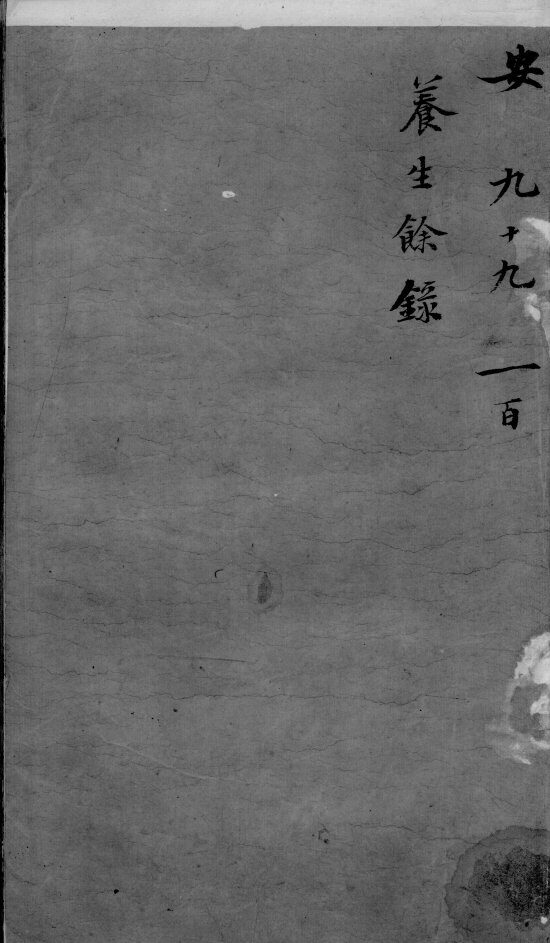 安 九十九 一百
養生餘録